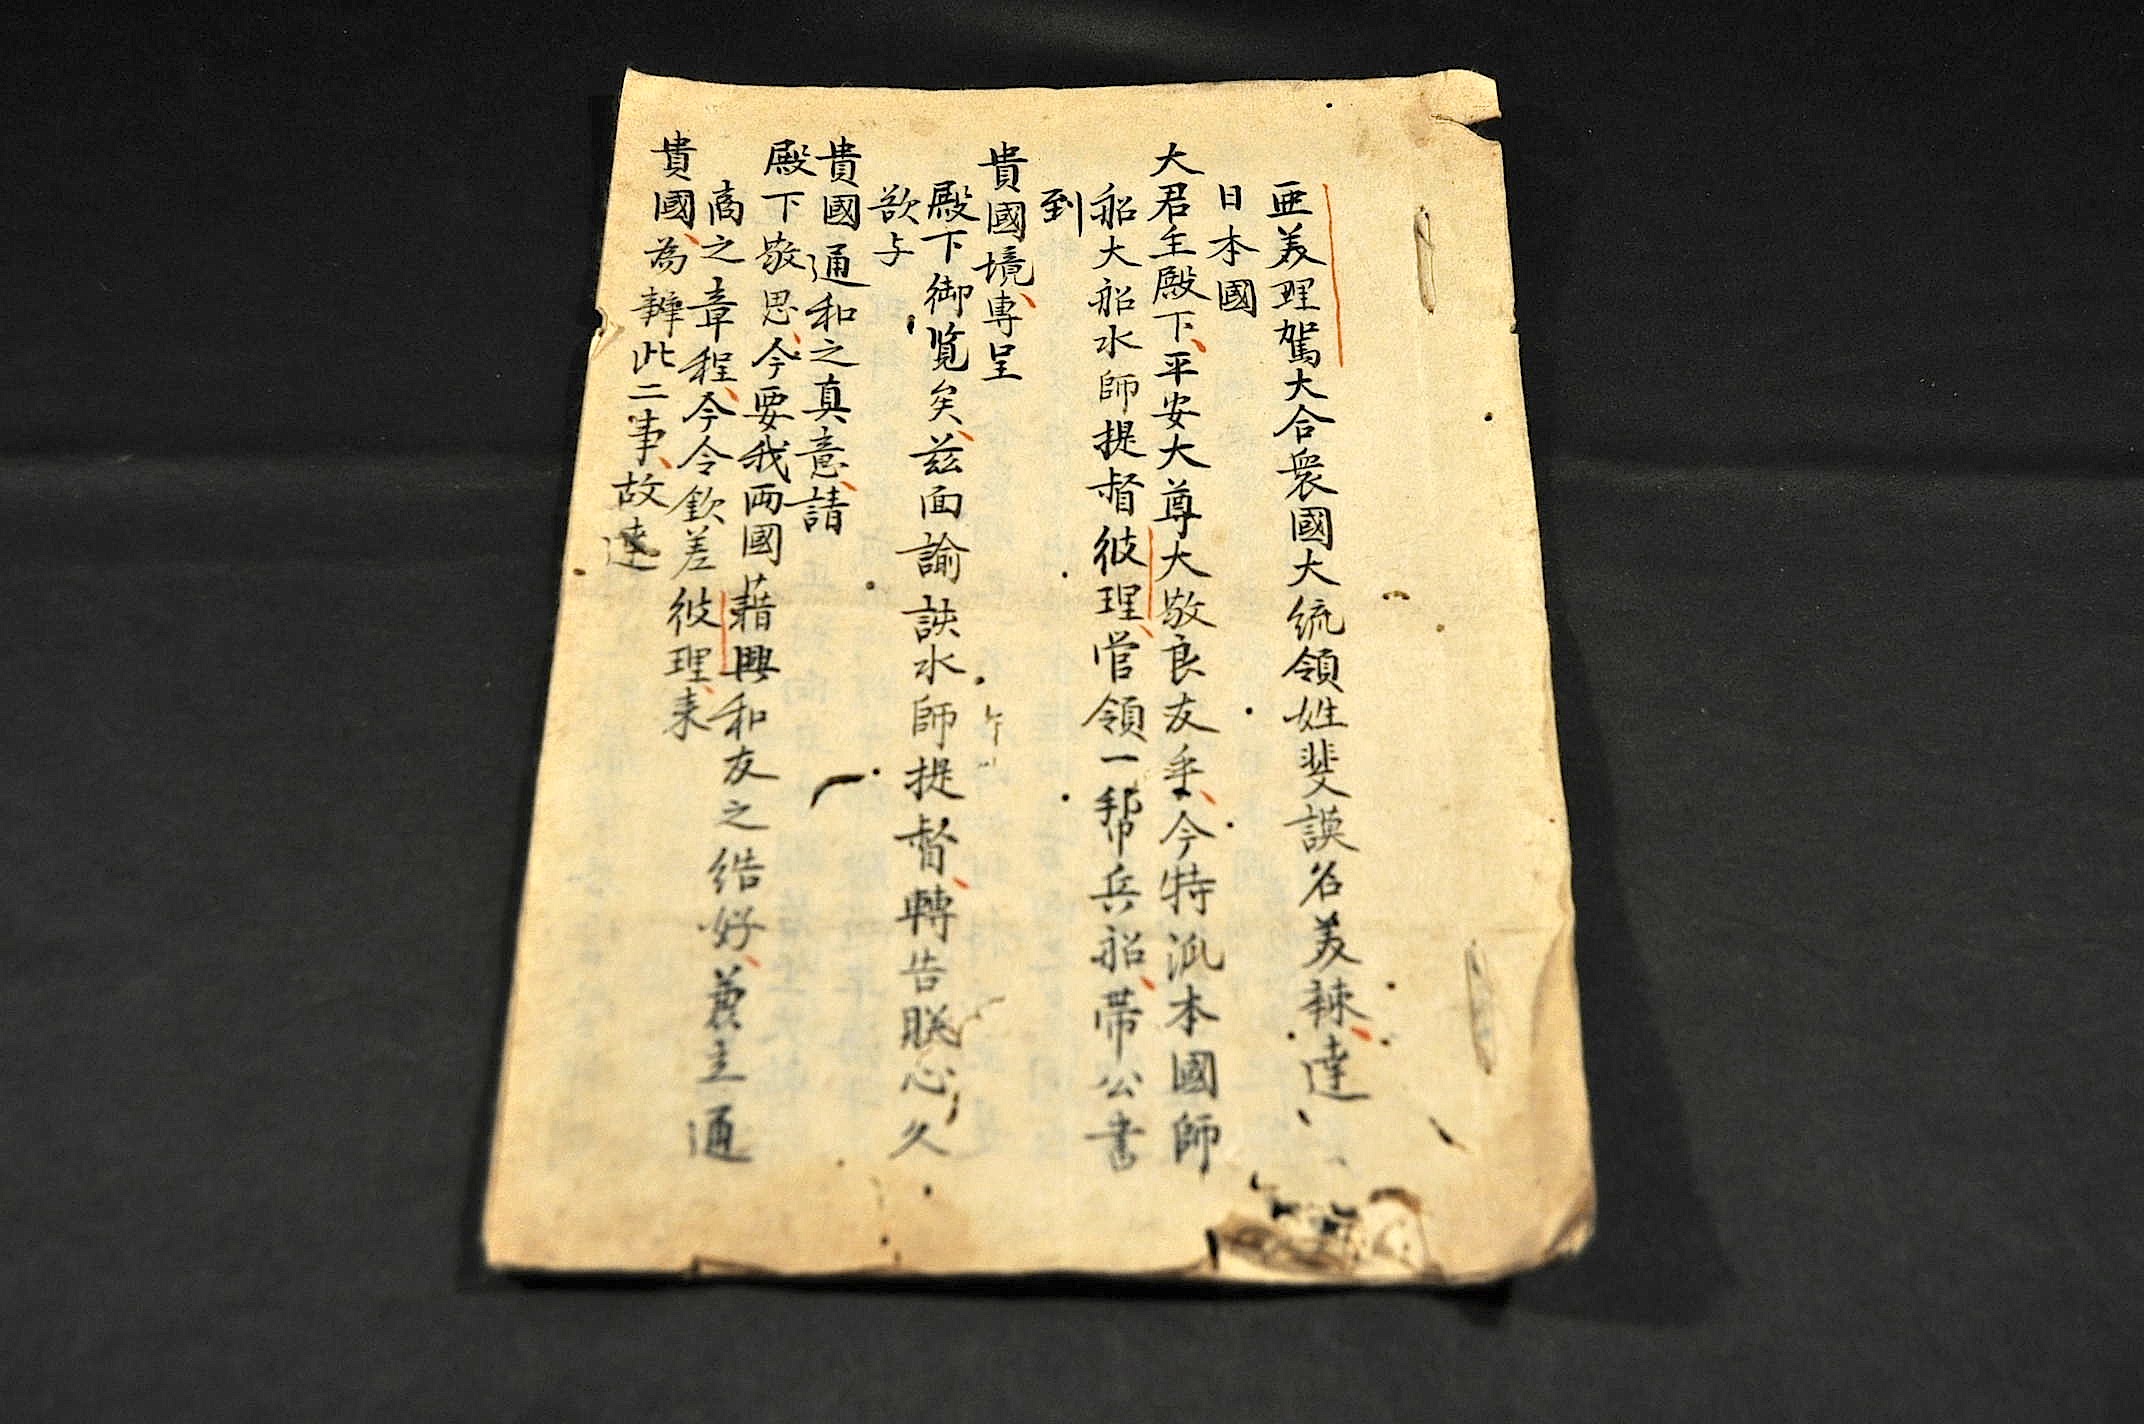 亜美理駕大合衆國大統領姓斐謨名美辣、達
日本國
大君主殿下、平安大尊大敬良友乎、今特派本國師
船大船水師提督彼理、管領一幇兵船、帯公書
到
貴國境、專呈
殿下御覧矣、茲面諭該水師提督、轉告朕心久
欲与
貴國通和之真意、請
殿下敬思、今要我両國藉興和友之結好、兼立通
商之章程、今令欽差彼理、来
貴國、為辦此二事、故達